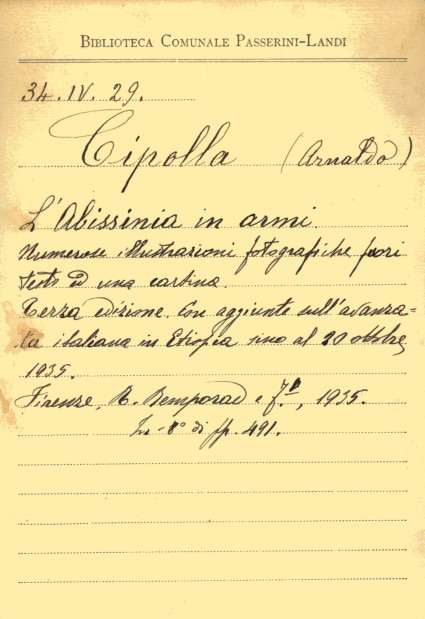 BIBLIOTECA COMUNALE PASSERINI-LANDI
34.IV.29.
Cipolla (Arnaldo)
L'Abissinia in armi.
Numerose illustrazioni fotografiche fuori
testo ed una cartina.
Terza edizione con aggiunte sull'avanza-
ta italiana in Etiopia sino al 20 ottobre
1935.
Firenze, R. Bemporad e f.º, 1935.
In-8º di pp. 491.